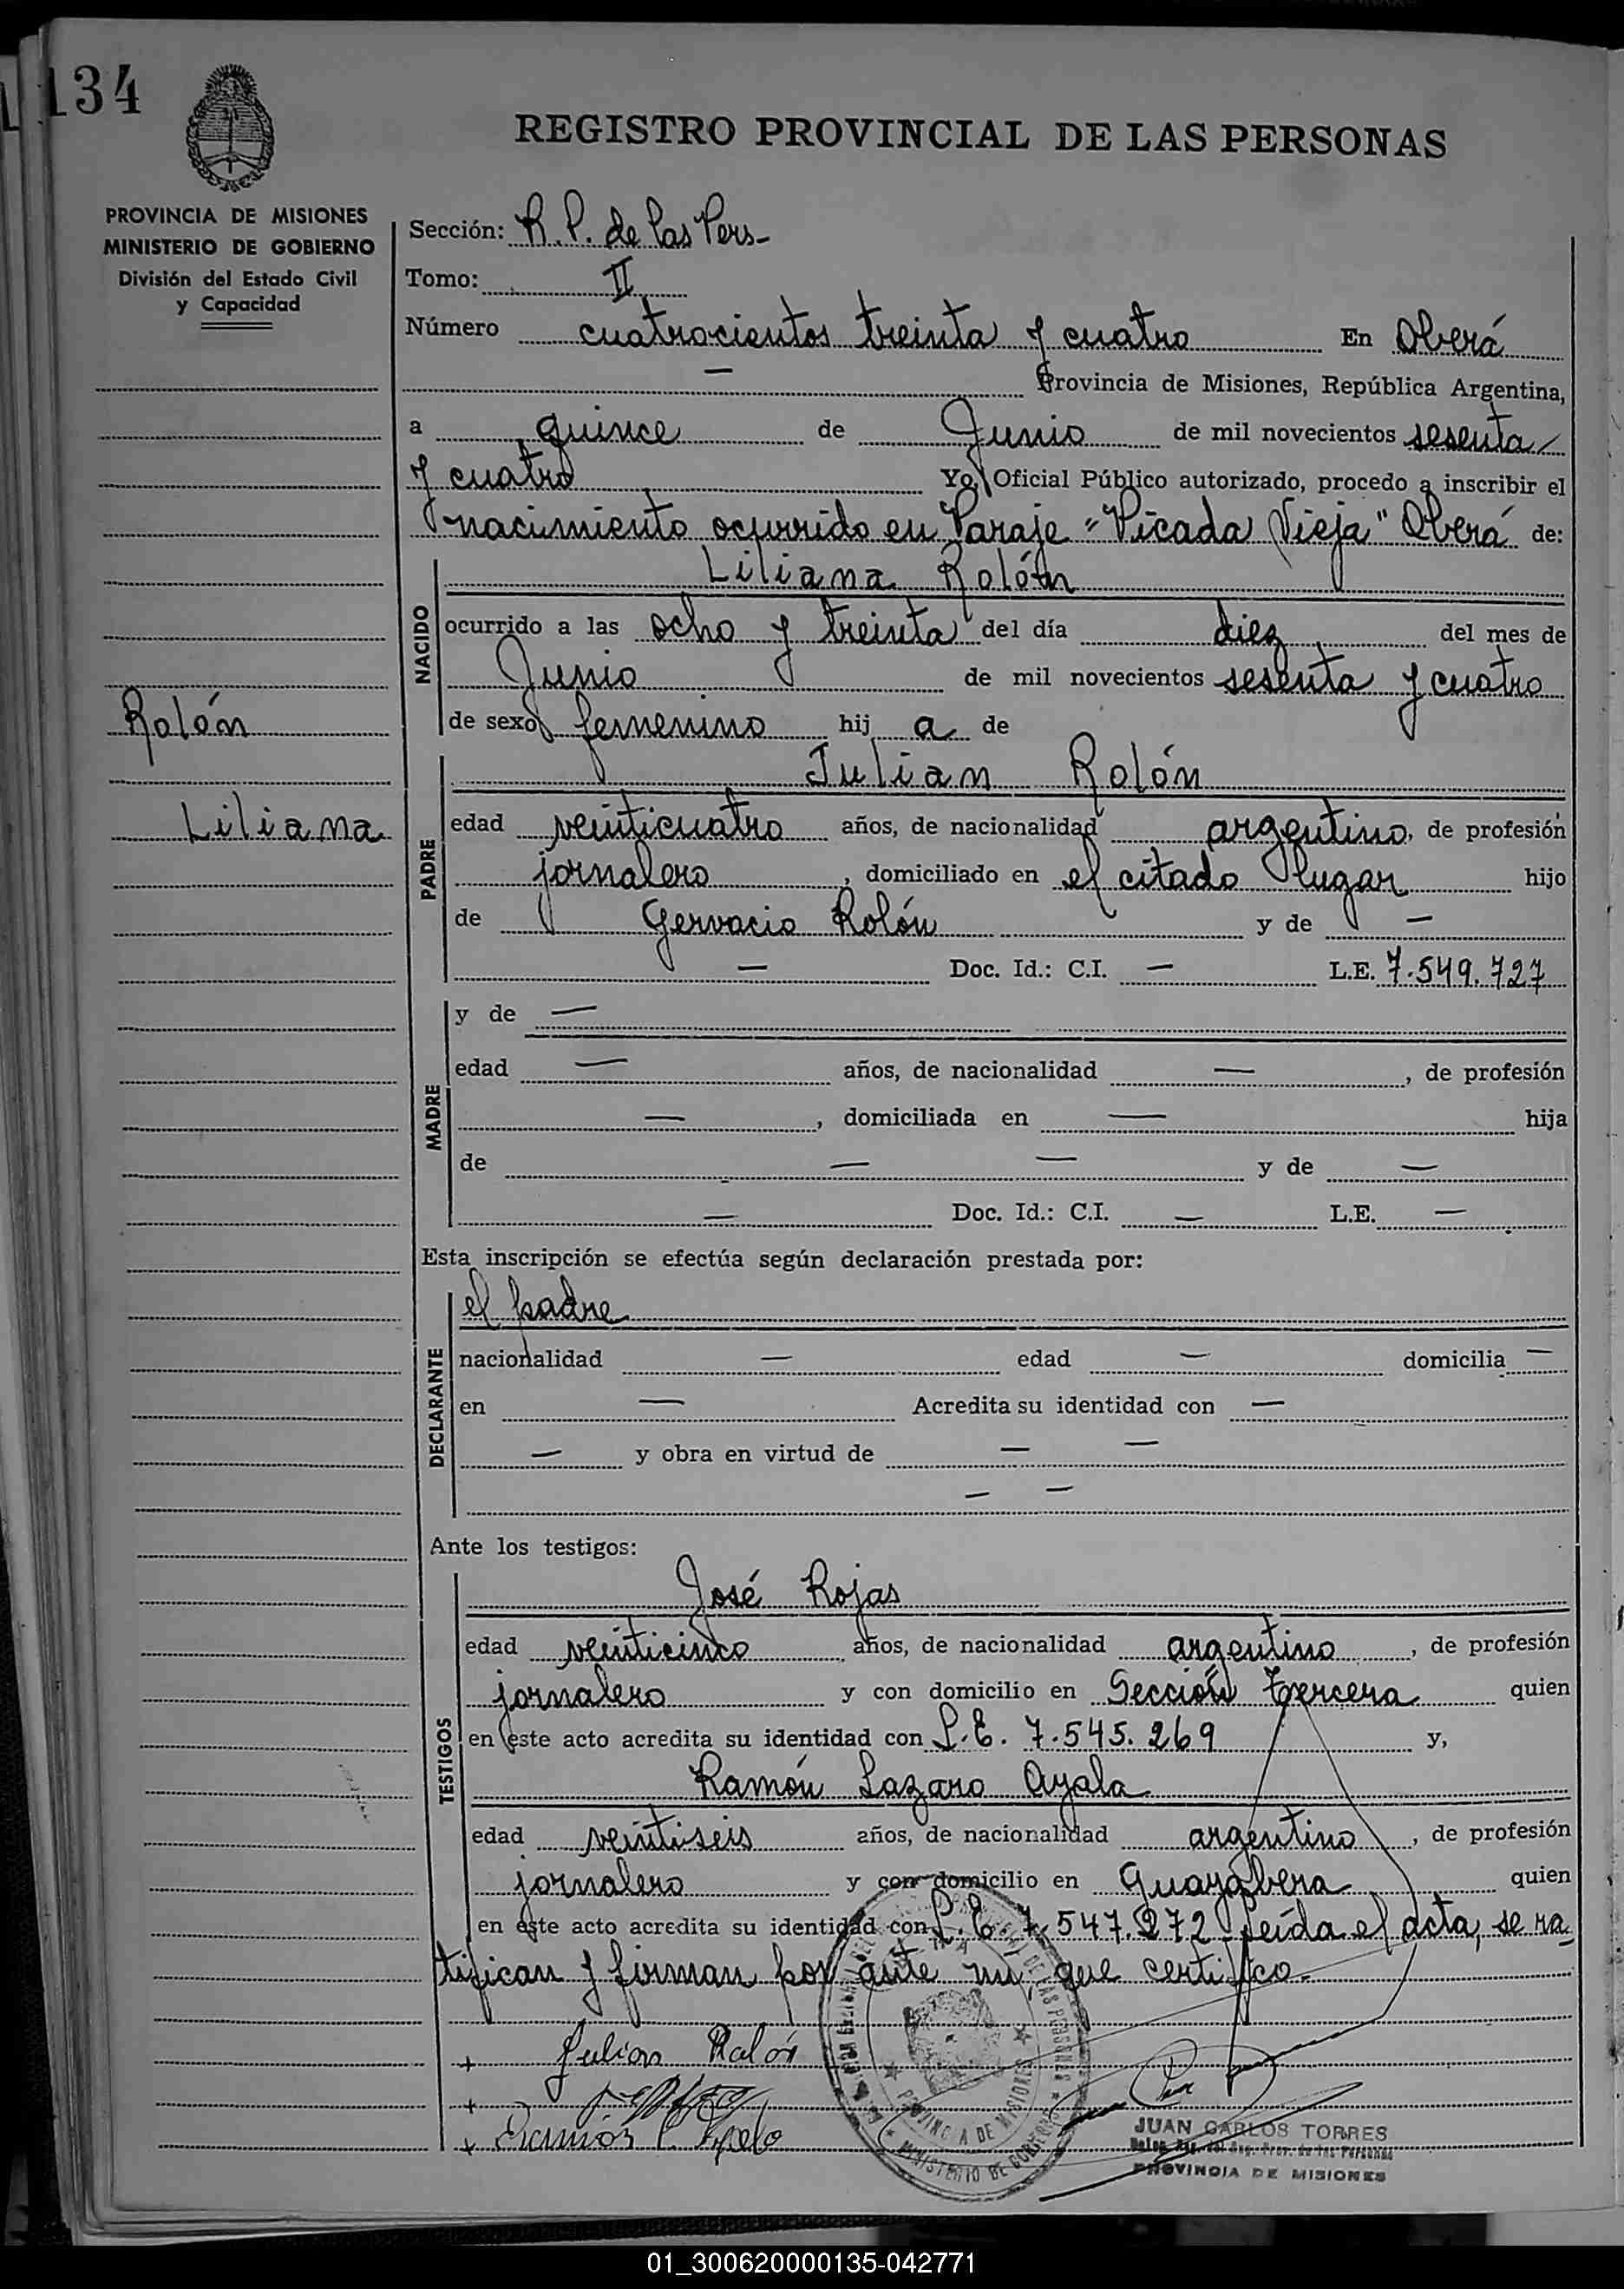 134
REGISTRO PROVINCIAL DE LAS PERSONAS
PROVINCIA DE MISIONES
MINISTERIO DE GOBIERNO
División del Estado Civil
y Capacidad
Sección: R.P. de las Pers-
Tomo: II
Número cuatrocientos treinta y cuatro En Oberá
— Provincia de Misiones, República Argentina,
a quince de Junio de mil novecientos sesenta
y cuatro Yo, Oficial Público autorizado, procedo a inscribir el
nacimiento ocurrido en Paraje "Picada Vieja" Oberá de:
NACIDO
Liliana Rolón
ocurrido a las ocho y treinta del día diez del mes de
Junio de mil novecientos sesenta y cuatro
Rolón
de sexo femenino hij a de
PADRE
Julian Rolón
Liliana
edad veinticuatro años, de nacionalidad argentino, de profesión
jornalero, domiciliado en el citado lugar hijo
de Gervacio Rolón y de —
— Doc. Id.: C.I. — L.E. 7.549.727
MADRE
y de —
edad — años, de nacionalidad —, de profesión
—, domiciliada en — hija
de — — y de —
— Doc. Id.: C.I. — L.E. —
Esta inscripción se efectúa según declaración prestada por:
DECLARANTE
el padre
nacionalidad — edad — domicilia —
en — Acredita su identidad con —
— y obra en virtud de — —
— —
Ante los testigos:
TESTIGOS
José Rojas
edad veinticinco años, de nacionalidad argentino, de profesión
jornalero y con domicilio en Sección tercera quien
en este acto acredita su identidad con L.E. 7.545.269 y,
Ramón Lazaro Ayala
edad veintiseis años, de nacionalidad argentino, de profesión
jornalero y con domicilio en Guayabera quien
en este acto acredita su identidad con L.E. 7.547.272 leída el acta, se ra
tifican y firman por ante mi, que certifico.
Julian Rolón
JUAN CARLOS TORRES
PROVINCIA DE MISIONES
PROVINCIA DE MISIONES
MINISTERIO DE GOBIERNO
01_300620000135-042771